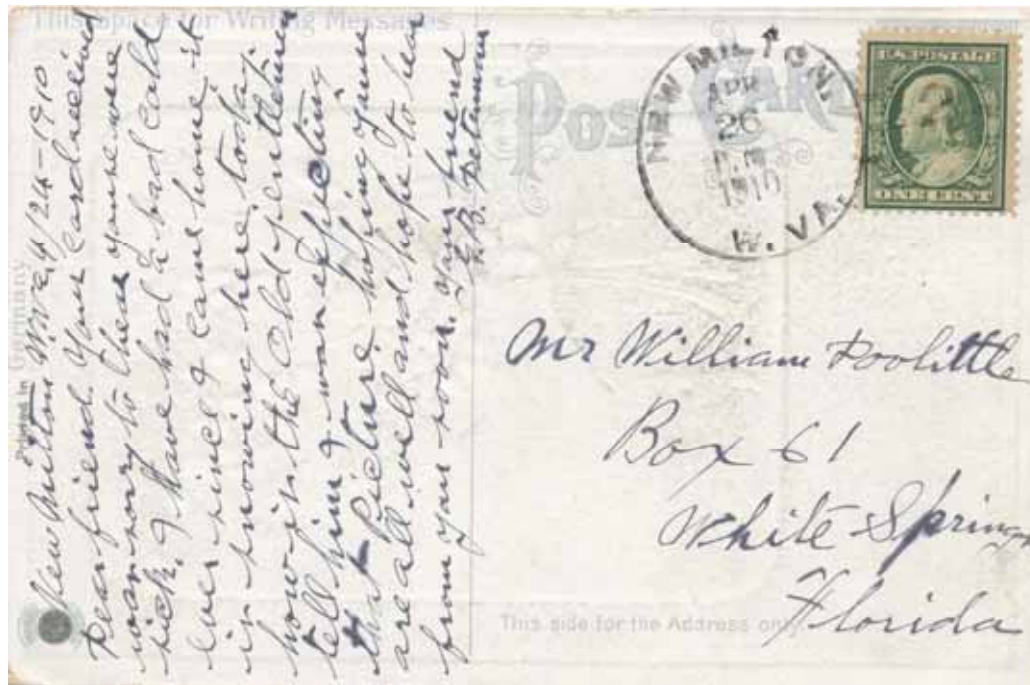 This Space for Writing Messages
New Milton W Va 4/26-1910
Dear friend. Your card received
was sorry to hear you were
sick. I have had a bad cold
ever since I came home it
is snowing here today
how is the old gentleman
tell him I am expecting
that Picture hoping you
are all well and hope to hear
from you soon. Your friend
Printed in Germany
POST CARD
NEW MILTON,
APR
26
1910
W. VA.
U.S. POSTAGE
ONE CENT
Mr William Doolittle
Box 61
White Springs
Florida
This side for the Address only.